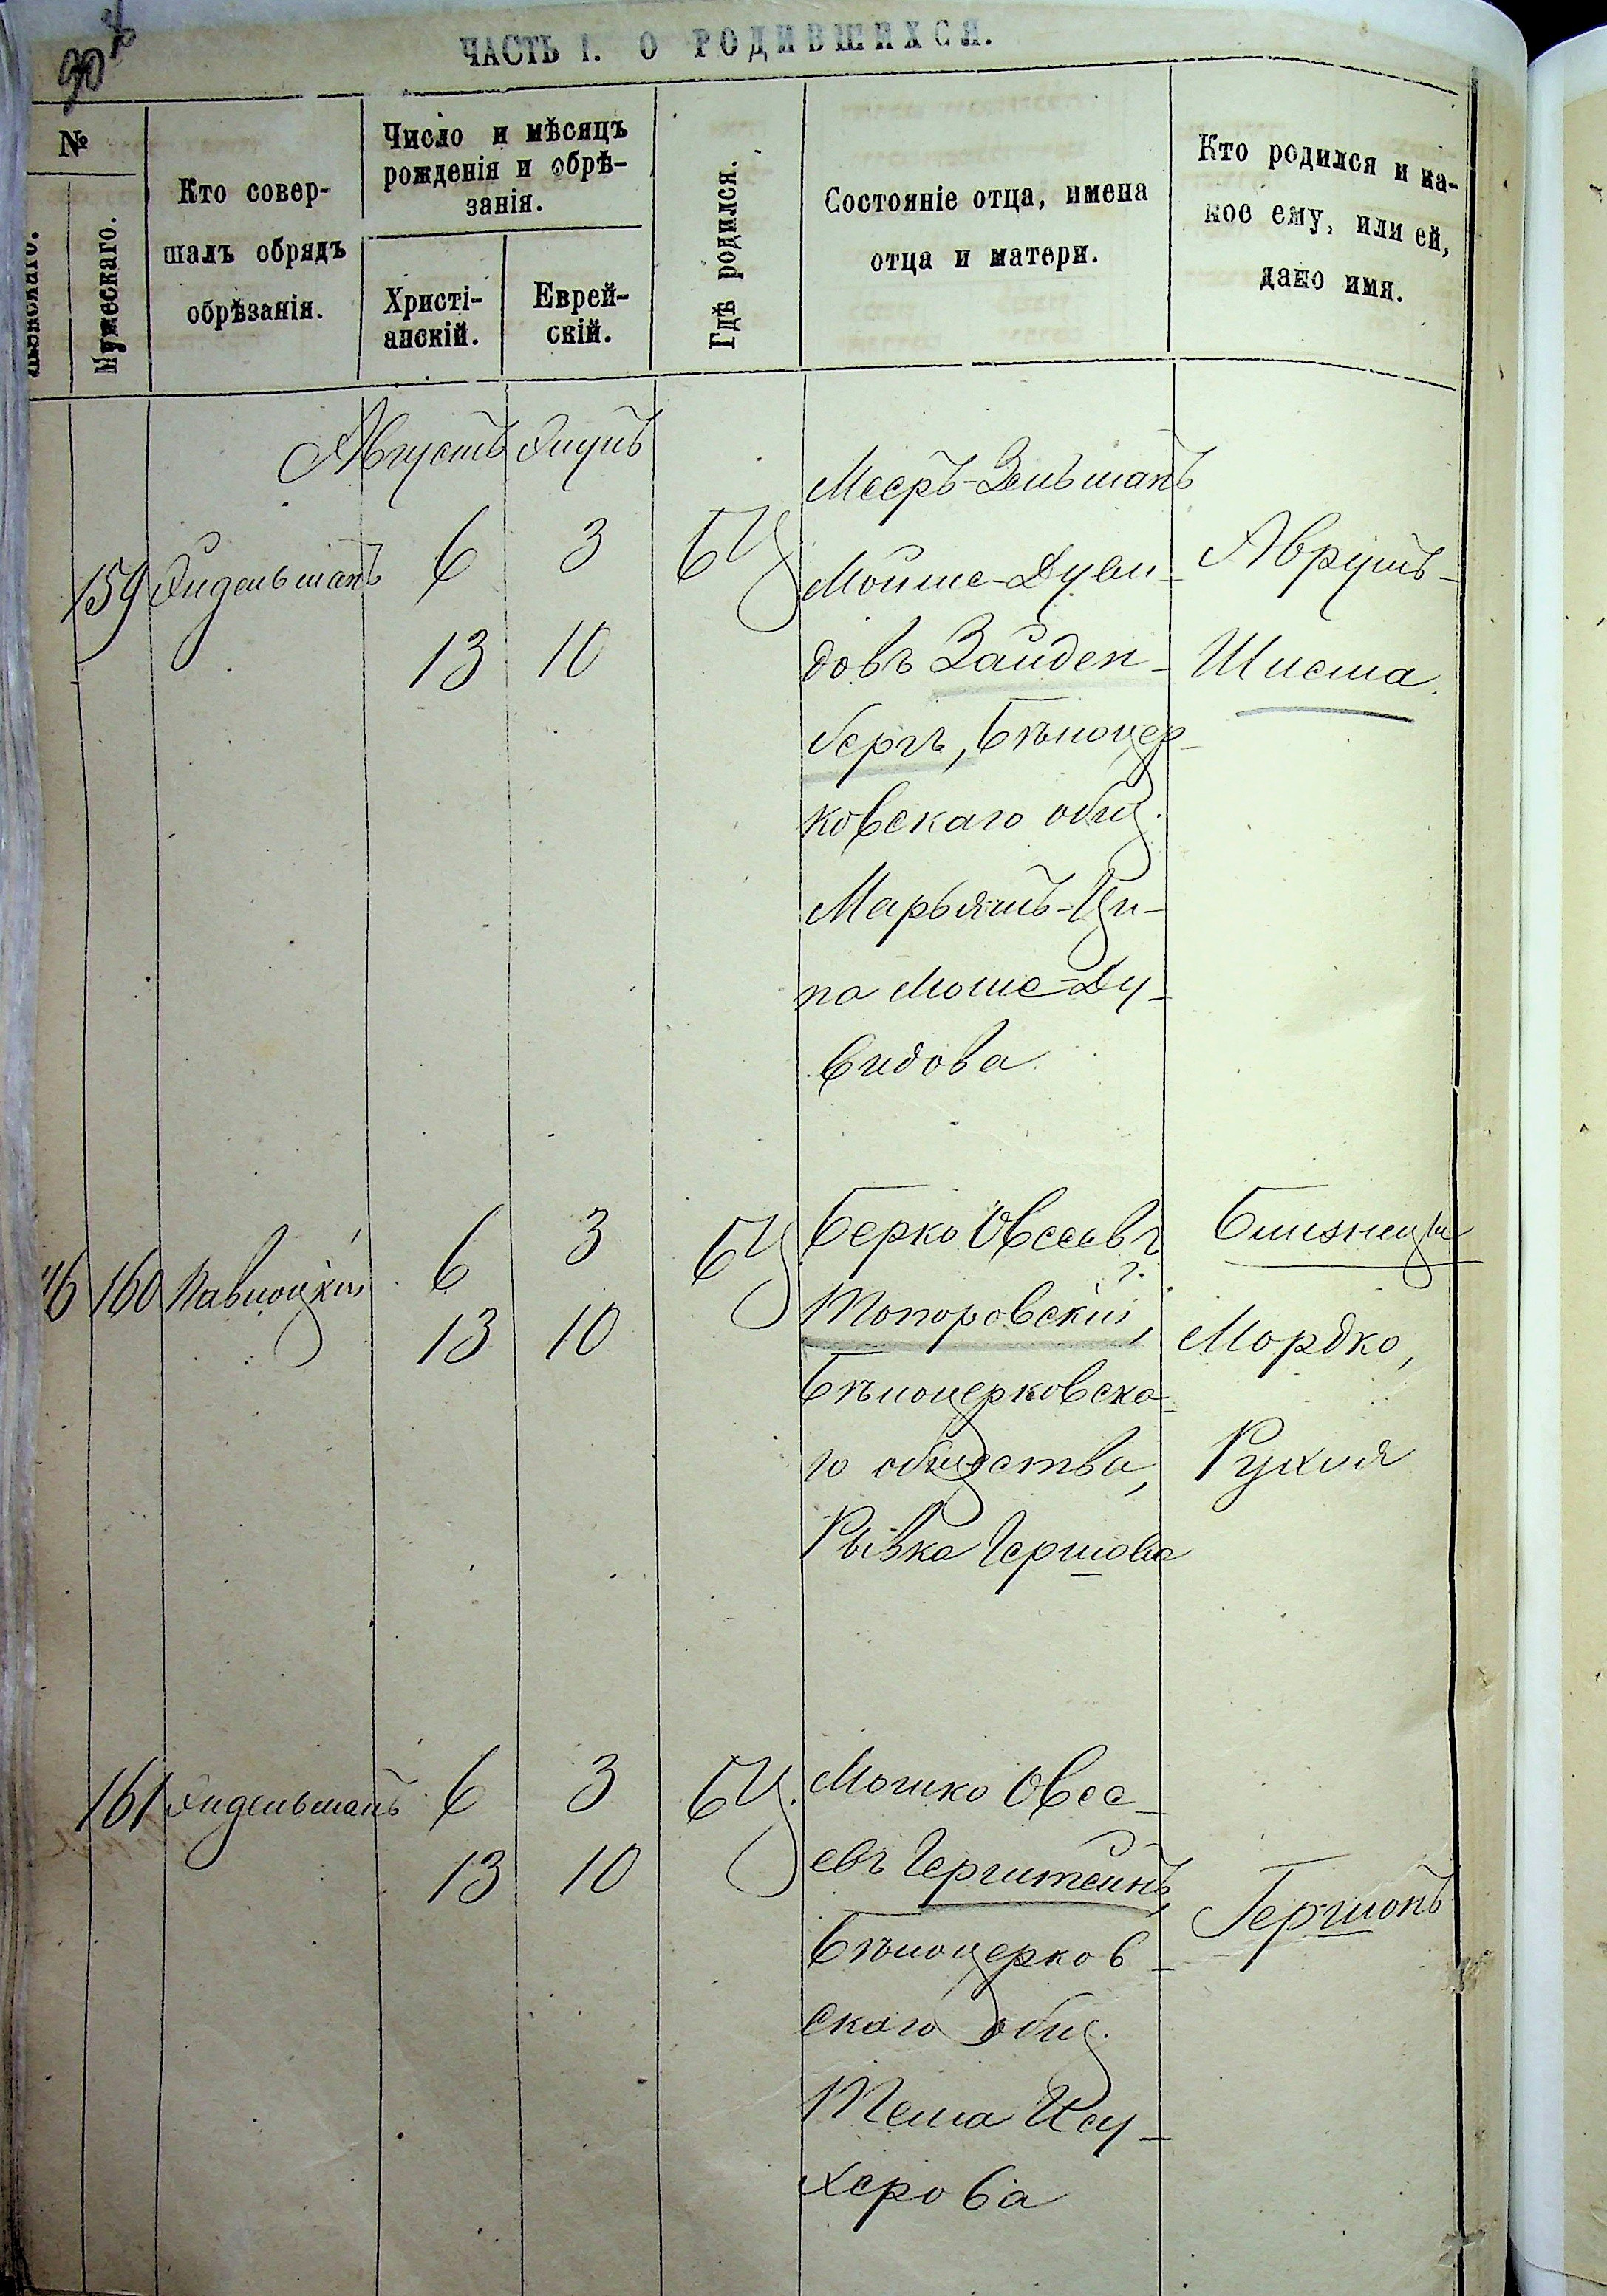 90
ЧАСТЬ I. О РОДИВШИХСЯ.
№
Женскаго.
Мужескаго.
Кто совер-
шалъ обрядъ
обрѣзанія.
Число и мѣсяцъ
рожденія и обрѣ-
занія.
Христі-
анскій.
Еврей-
скій.
Гдѣ родился.
Состояніе отца, имена
отца и матери.
Кто родился и ка-
кое ему, или ей,
дано имя.
Августъ Элулъ
159 Эидельманъ 6 3 БЦ
13 10
Мееръ-Зельманъ
Мойше-Дуви-
довъ Зайден-
бергъ, Бѣлоцер-
ковскаго общ.
Марьямъ-Ци-
па Моше-Ду-
видова
Аврумъ-
Шлема.
46 160 Павлоцкій 6 3 БЦ
13 10
Берко Овсеевъ
Топоровскій,
Бѣлоцерковска-
го общества,
Рывка Гершова
Близнецы
Мордко,
Рухля
161 Эидельманъ 6 3 БЦ.
13 10
Мошко Овсе-
евъ Герштейнъ,
Бѣлоцерков-
скаго общ.
Тема Ису-
херова
Гершонъ